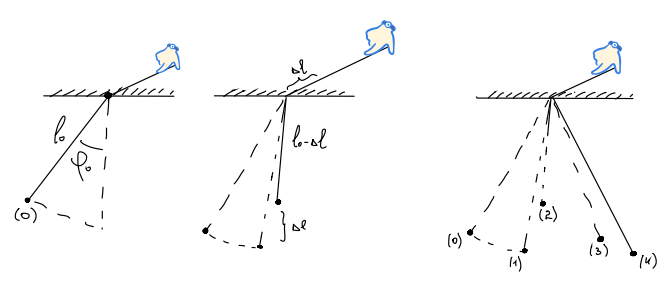 l₀
φ₀
(0)
Δl
l₀-Δl
Δl
(0)
(1)
(2)
(3)
(4)